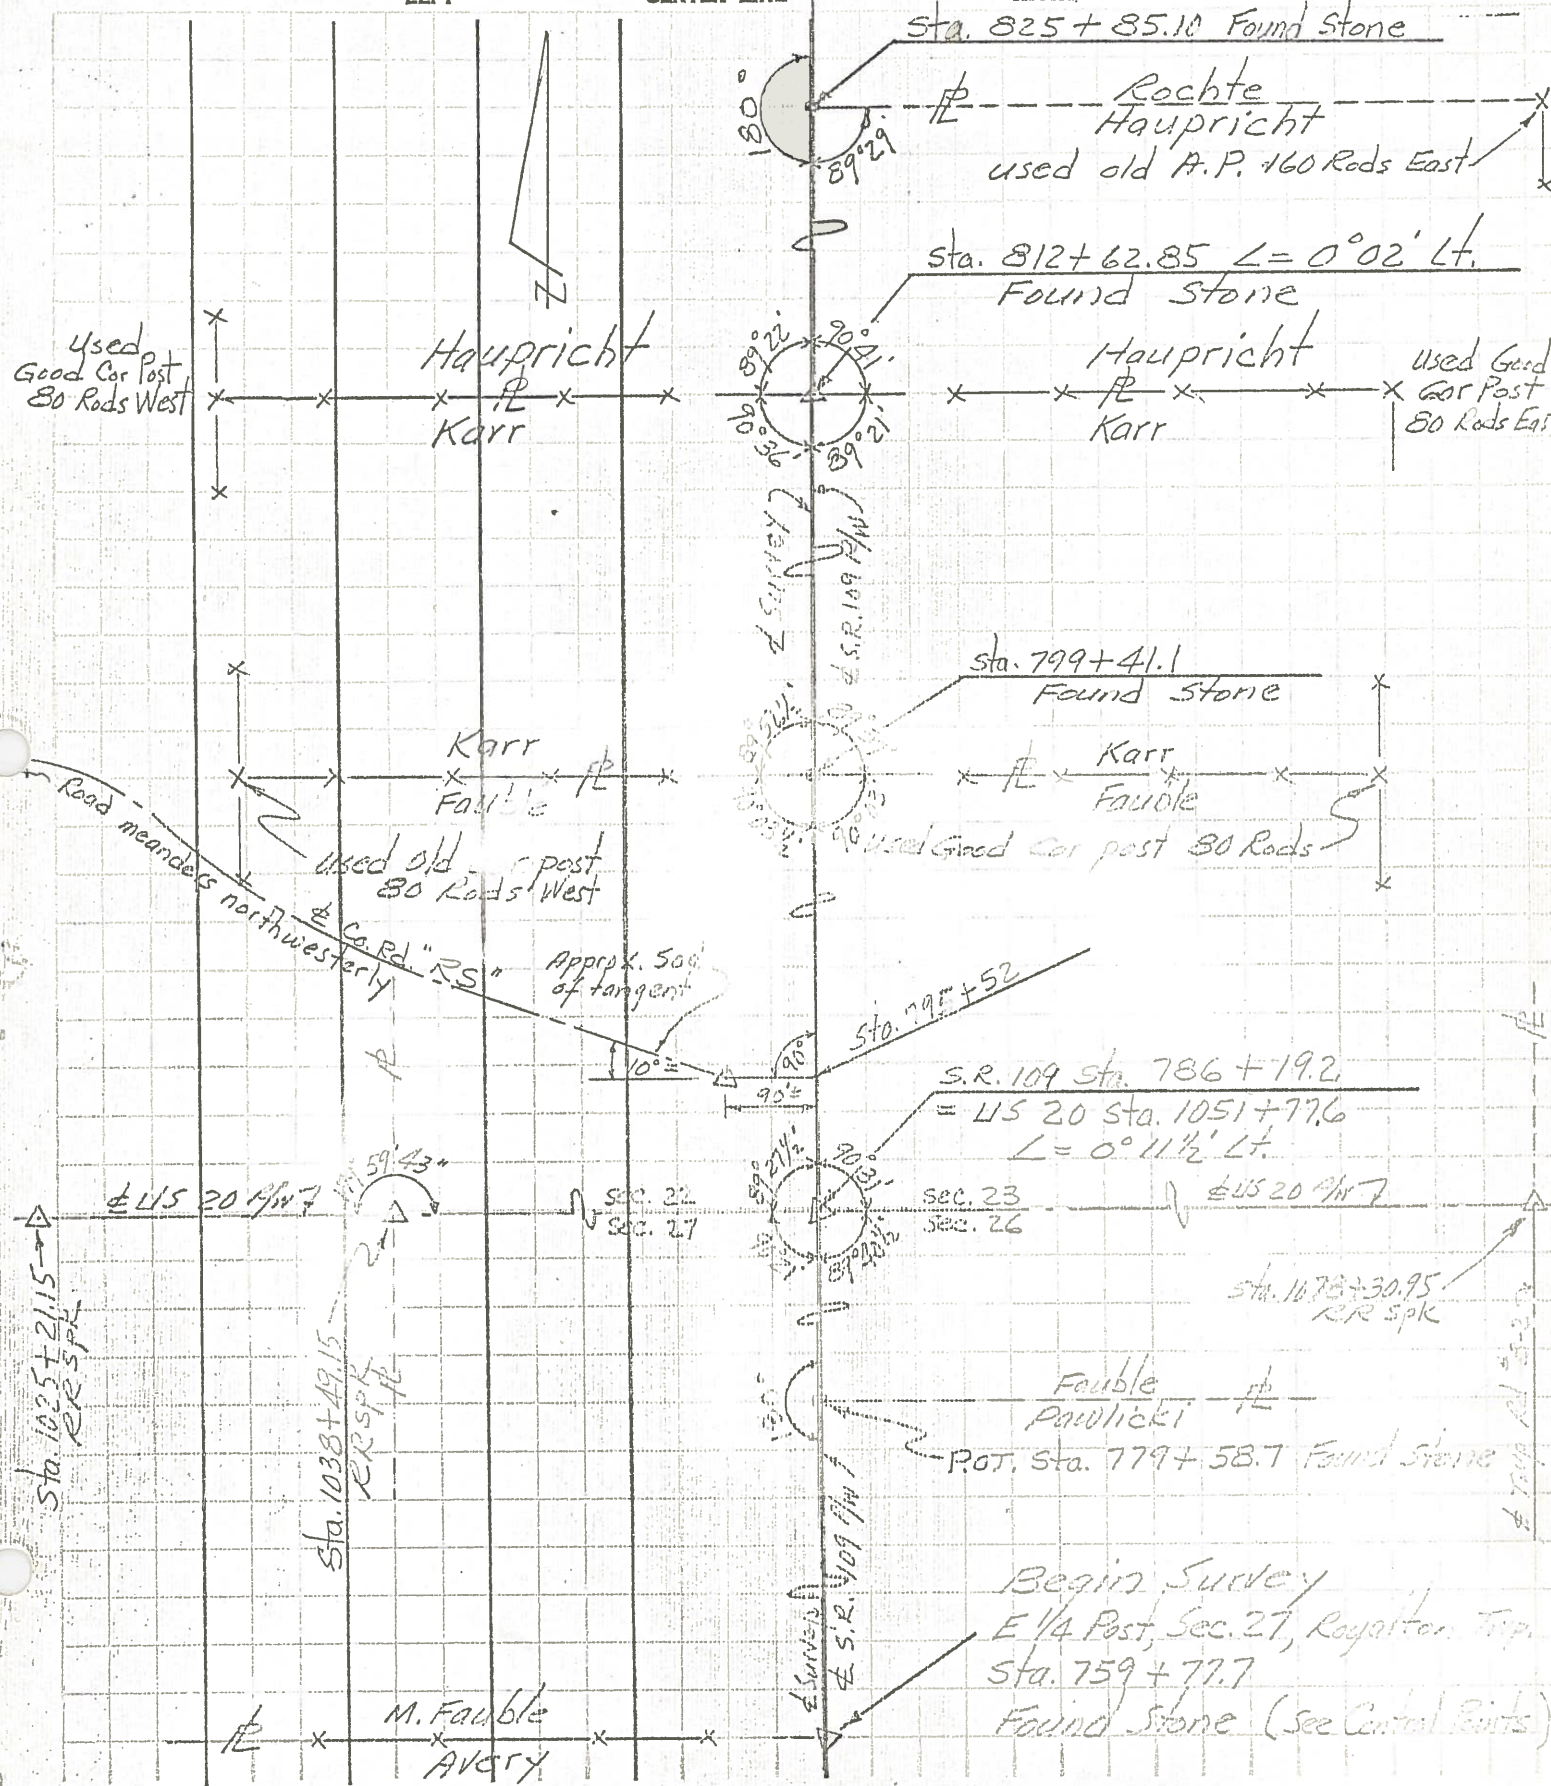 Sta. 825 + 85.10 Found Stone
180°
89°29'
℄ Rochte
Haupricht
used old A.P. 160 Rods East
Sta. 812 + 62.85 ∠ = 0°02' Lt.
Found Stone
Used
Good Cor Post
80 Rods West
Haupricht
℄
Karr
89°22'
90°41'
90°36'
89°21'
Haupricht
℄
Karr
Used Good
Cor Post
80 Rods Eas
℄ Survey
℄ S.R. 109 R/W
Sta. 799+41.1
Found Stone
Karr
℄
Fauble
Karr
℄
Fauble
used Good Cor post 80 Rods
used old post
80 Rods West
Road meanders northwesterly
℄ Co. Rd. "RS"
Approx. 500
of tangent
10°±
90°
90'±
Sta. 795+52
℄
℄
S.R. 109 Sta. 786 + 19.2
= US 20 Sta. 1051+77.6
∠ = 0°11½' Lt.
59'43"
℄ US 20 R/W
Sec. 22
Sec. 27
Sec. 23
Sec. 26
℄ US 20 R/W
Sta. 1025+21.15
RR Spk
Sta. 1038+49.15
RR Spk
℄
Sta. 1078+30.95
RR Spk
Fauble
℄
Pawlicki
P.O.T. Sta. 779+58.7 Found Stone
℄ Survey
℄ S.R. 109 R/W
Begin Survey
E 1/4 Post, Sec. 27, Royalton Twp.
Sta. 759+77.7
Found Stone (See Control Points)
M. Fauble
℄
Avery